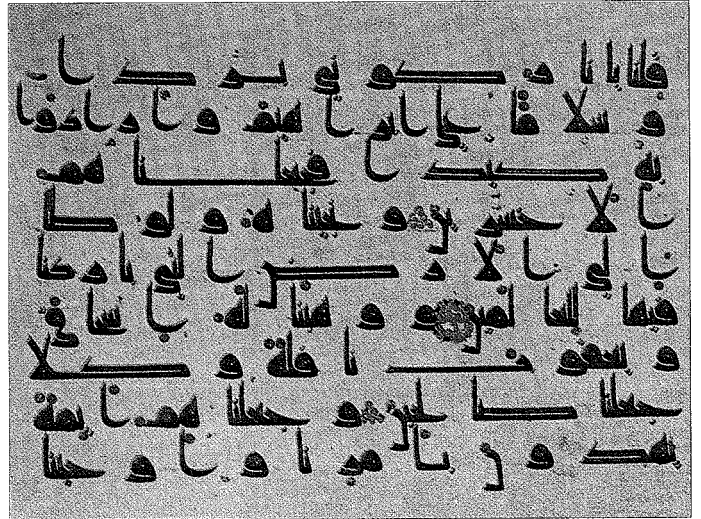 قلنا ينار كوني بردا
وسلما على ابرهيم وارادوا
به كيدا فجعلنهم
الاخسرين ونجينه ولوطا
الى الارض التي بركنا
فيها للعلمين ووهبنا له اسحق
ويعقوب نافلة وكلا
جعلنا صلحين وجعلنهم ائمة
يهدون بامرنا واوحينا